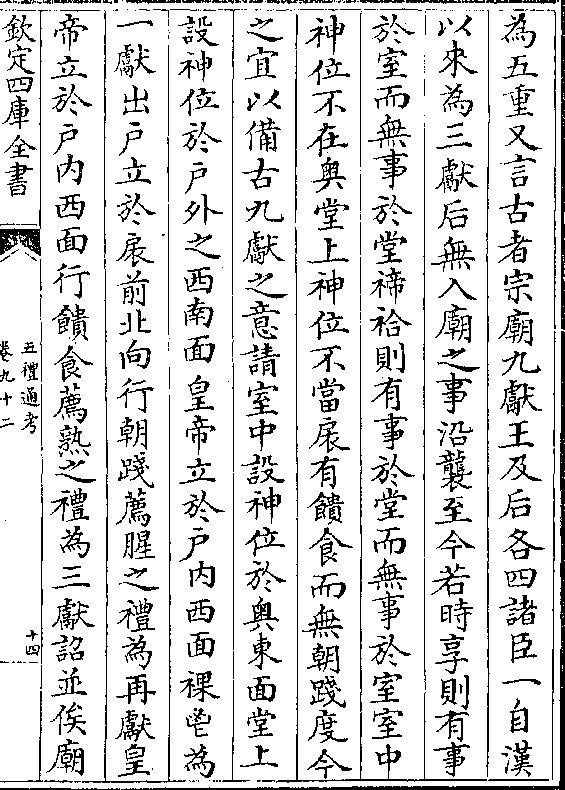 為五重又言古者宗廟九獻王及后各四諸臣一自漢
以來為三獻后無入廟之事沿襲至今若時享則有事
於室而無事於堂禘祫則有事於堂而無事於室室中
神位不在奥堂上神位不當扆有饋食而無朝踐度今
之宜以備古九獻之意請室中設神位於奥東面堂上
設神位於戶外之西南面皇帝立於戶内西面祼鬯為
一獻出戶立於扆前北向行朝踐薦腥之禮為再獻皇
帝立於戶内西面行饋食薦熟之禮為三獻詔並俟廟
欽定四庫全書
五禮通考
卷九十二
十四